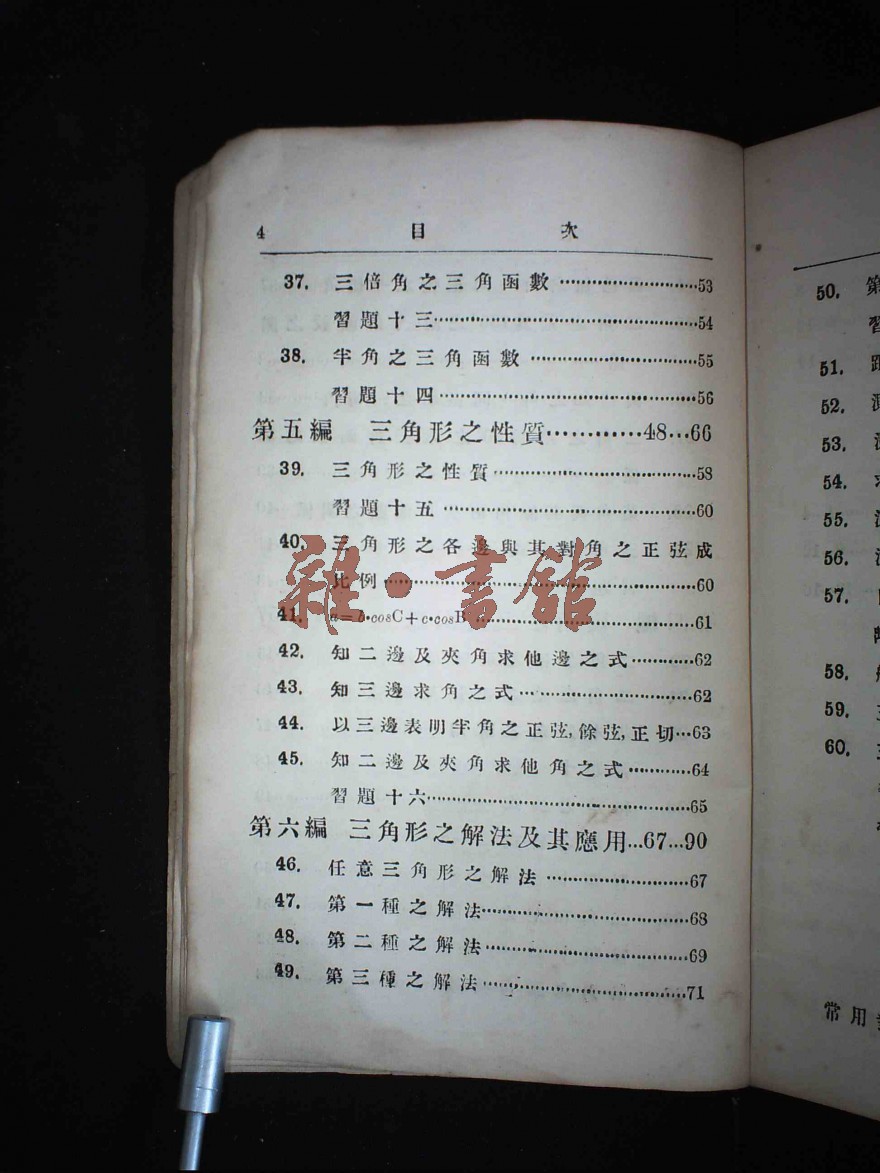 4 目 次
37. 三倍角之三角函數………………53
習題十三………………54
38. 半角之三角函數………………55
習題十四………………56
第五編 三角形之性質…………48…66
39. 三角形之性質………………58
習題十五………………60
40. 三角形之各邊與其對角之正弦成
比例………………60
41. a=b•cosC+c•cosB………………61
42. 知二邊及夾角求他邊之式…………62
43. 知三邊求角之式………………62
44. 以三邊表明半角之正弦,餘弦,正切…63
45. 知二邊及夾角求他角之式…………64
習題十六………………65
第六編 三角形之解法及其應用…67…90
46. 任意三角形之解法………………67
47. 第一種之解法………………68
48. 第二種之解法………………69
49. 第三種之解法………………71
雜•書館
50. 第
習
51.
52.
53.
54.
55.
56.
57.
58.
59.
60.
常用